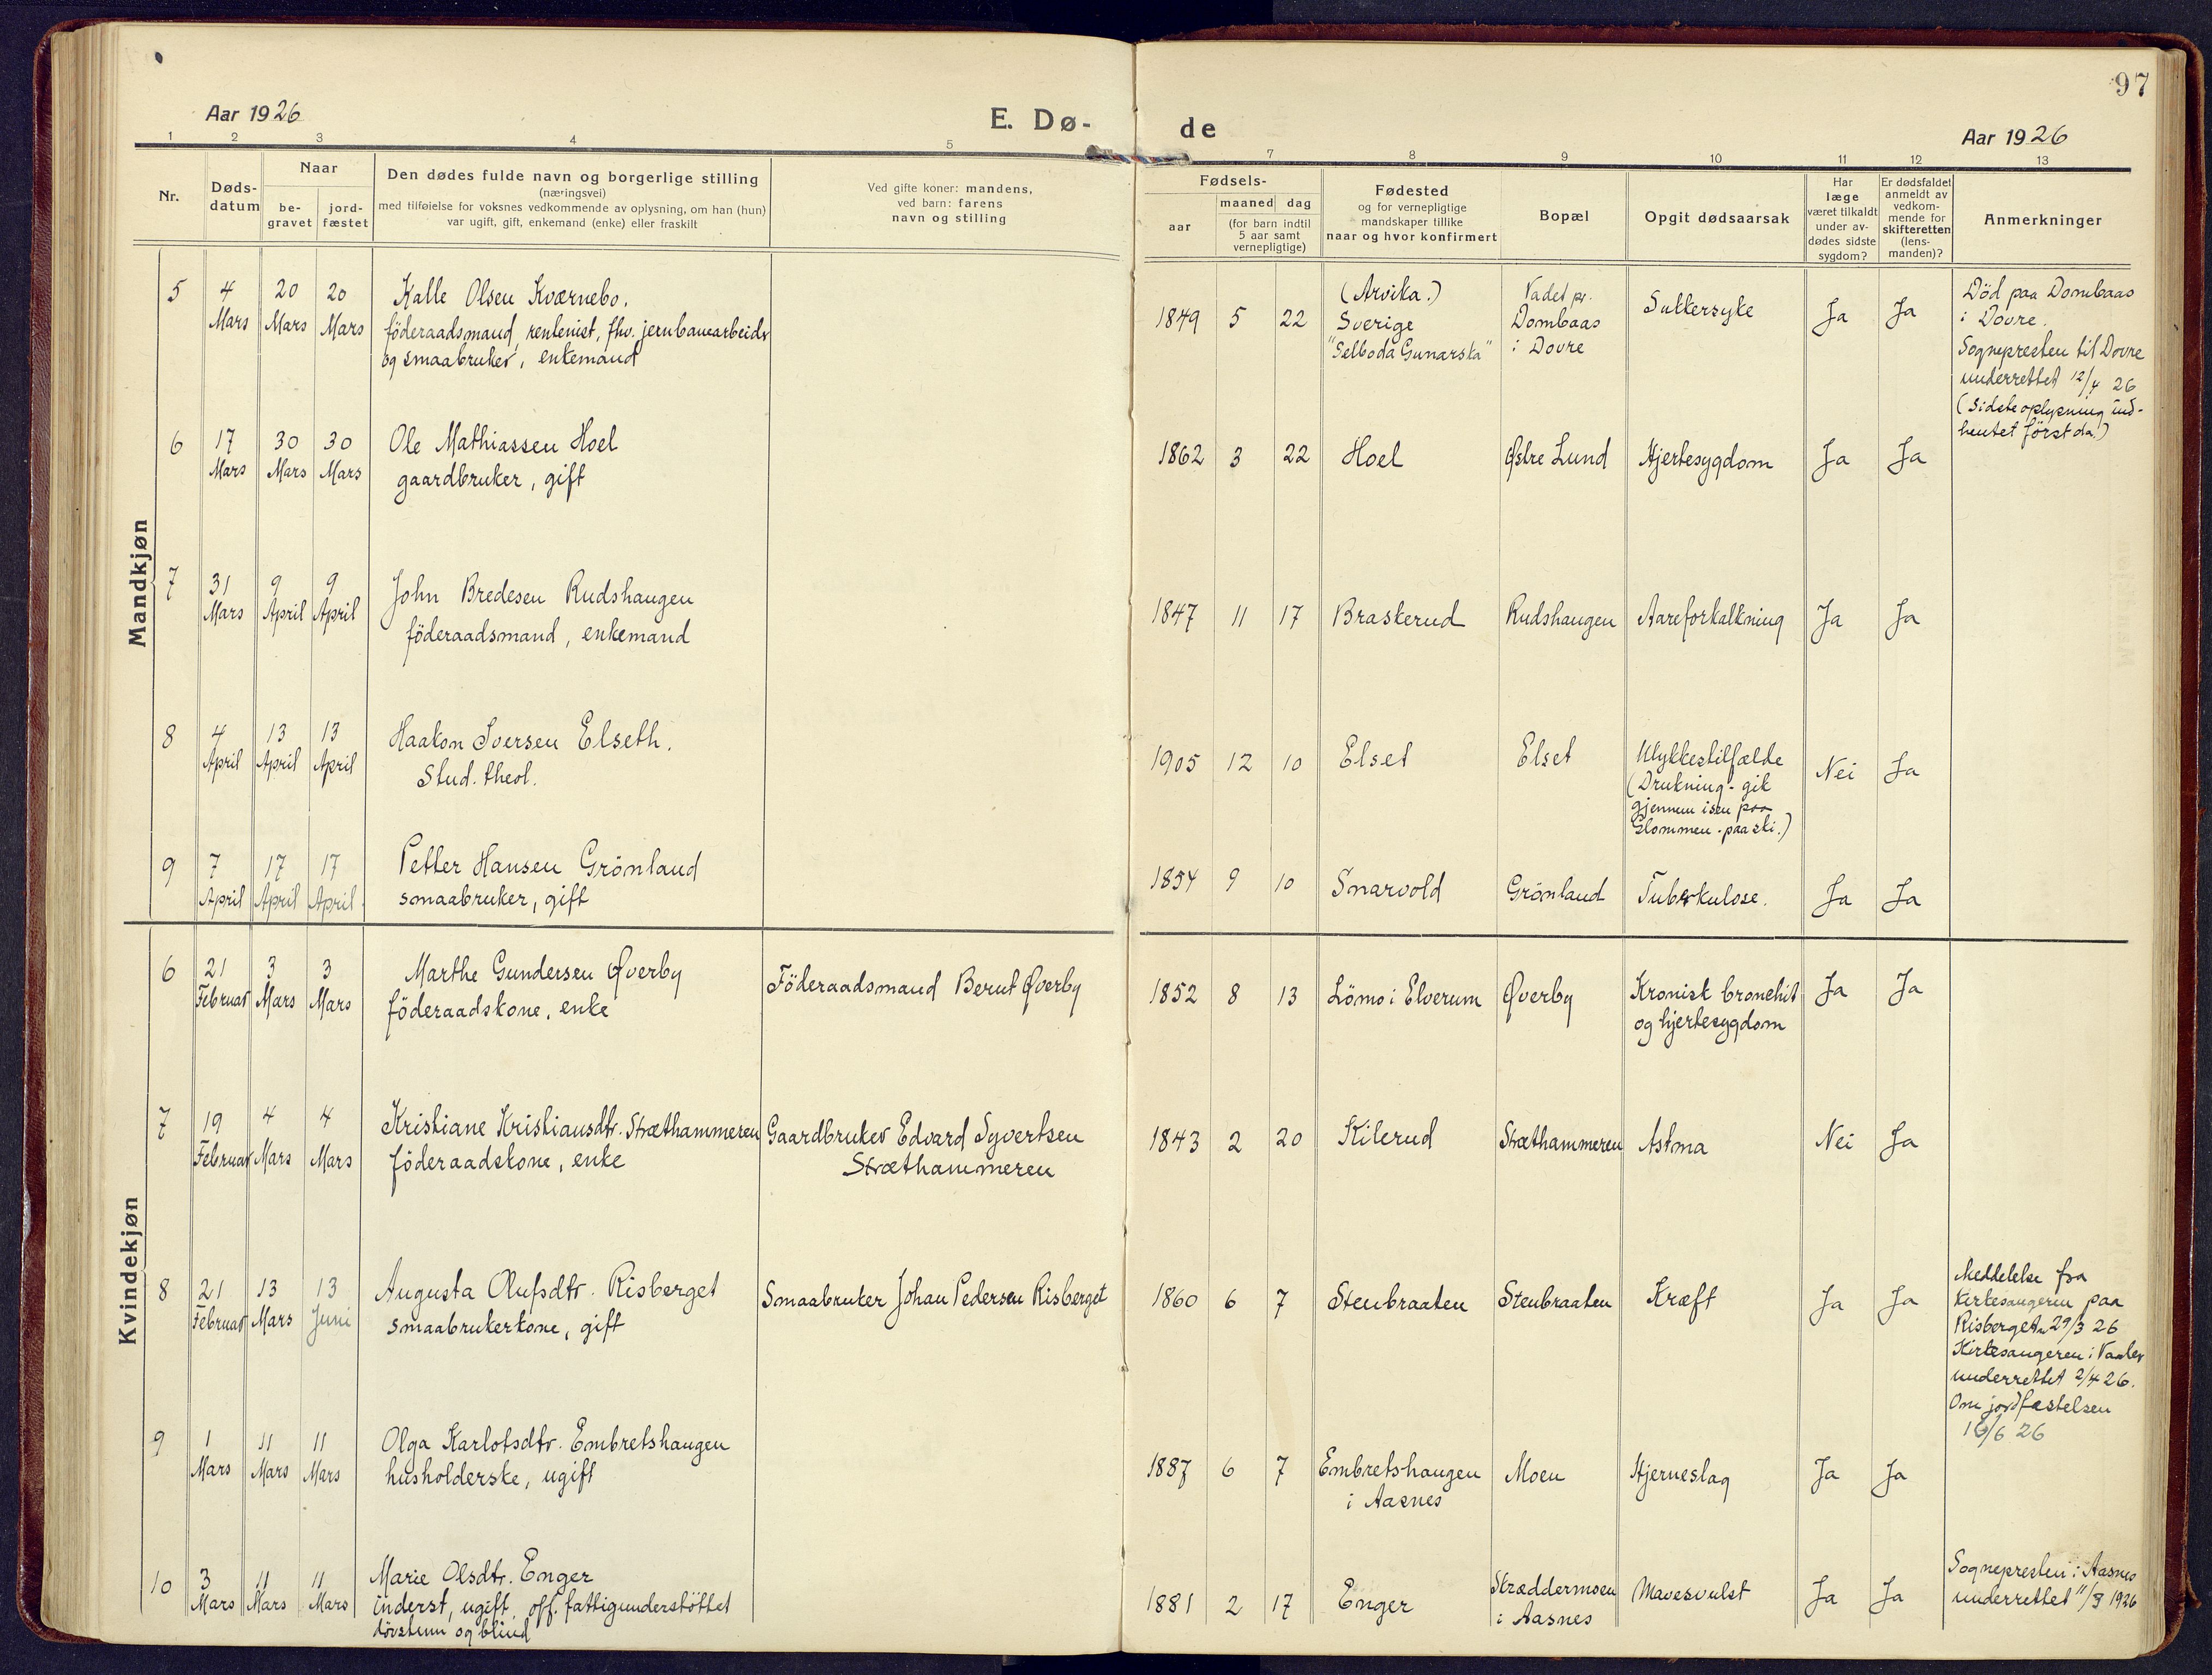 97
Aar 1926
E. Dø-
de
Aar 1926
1 2 3 4 5 7 8 9 10 11 12 13
Nr.
Døds-
datum
Naar
be-
gravet
jord-
fæstet
Den dødes fulde navn og borgerlige stilling
(næringsvei)
med tilføielse for voksnes vedkommende av oplysning, om han (hun)
var ugift, gift, enkemand (enke) eller fraskilt
Ved gifte koner: mandens,
ved barn: farens
navn og stilling
Fødsels-
aar
maaned dag
(for barn indtil
5 aar samt
vernepligtige)
Fødested
og for vernepligtige
mandskaper tillike
naar og hvor konfirmert
Bopæl
Opgit dødsaarsak
Har
læge
været tilkaldt
under av-
dødes sidste
sygdom?
Er dødsfaldet
anmeldt av
vedkom-
mende for
skifteretten
(lens-
manden)?
Anmerkninger
Mandkjøn
5
4
Mars
20
Mars
20
Mars
Kalle Olsen Kværnebo,
föderaadsmand, rentenist, fhv. jernbanearbeidr
og smaabruker, enkemand
1849 5 22
(Arvika.)
Sverige
"Selboda Gunarska"
Vadet pr.
Dombaas
i Dovre
Sukkersyke
Ja
Ja
Död paa Dombaas
i Dovre.
Sognepresten til Dovre
underrettet 12/4 26
(Sidste oplysning ind-
hentet först da.)
6
17
Mars
30
Mars
30
Mars
Ole Mathiassen Hoel
gaardbruker, gift
1862 3 22
Hoel
Østre Lund
Hjertesygdom
Ja
Ja
7
31
Mars
9
April
9
April
John Bredesen Rudshaugen
föderaadsmand, enkemand
1847 11 17
Braskerud
Rudshaugen
Aareforkalkning
Ja
Ja
8
4
April
13
April
13
April
Haakon Iversen Elseth.
Stud. theol.
1905 12 10
Elset
Elset
Ulykkestilfælde
(Drukning - gik
gjennem isen paa
Glommen - paa ski.)
Nei
Ja
9
7
April
17
April
17
April
Petter Hansen Grönland
smaabruker, gift
1854 9 10
Snarvold
Grönland
Tuberkulose.
Ja
Ja
Kvindekjøn
6
21
Februar
3
Mars
3
Mars
Marthe Gundersen Øverby
föderaadskone, enke
Föderaadsmand Bernt Øverby
1852 8 13
Lömo i Elverum
Øverby
Kronisk bronchit
og hjertesygdom
Ja
Ja
7
19
Februar
4
Mars
4
Mars
Kristiane Kristiansdtr. Stræthammeren
föderaadskone, enke
Gaardbruker Edvard Syvertsen
Stræthammeren
1843 2 20
Kilerud
Stræthammeren
Astma
Nei
Ja
8
21
Februar
13
Mars
13
Juni
Augusta Olufsdtr. Risberget
smaabrukerkone, gift
Smaabruker Johan Pedersen Risberget
1860 6 7
Stenbraaten
Stenbraaten
Kræft
Ja
Ja
Meddelelse fra
kirkesangeren paa
Risberget 29/3 26
Kirkesangeren i Vaaler
underrettet 2/4 26.
Om jordfæstelsen
16/6 26
9
1
Mars
11
Mars
11
Mars
Olga Karlotsdtr. Embretshaugen
husholderske, ugift
1887 6 7
Embretshaugen
i Aasnes
Moen
Hjerneslag
Ja
Ja
10
3
Mars
11
Mars
11
Mars
Marie Olsdtr. Enger
inderst, ugift, off. fattigunderstöttet
dövstum og blind
1881 2 17
Enger
Stræddermoen
i Aasnes
Mavesvulst
Ja
Ja
Sognepresten i Aasnes
underrettet 11/3 1926